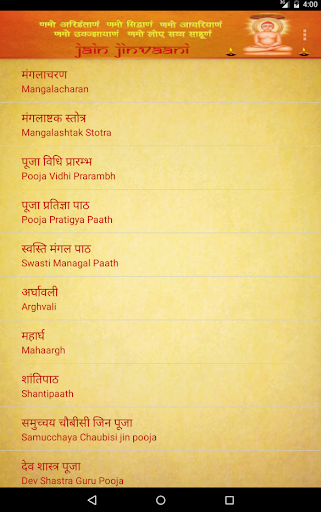 4:00
णमो अरिहंताणं णमो सिद्धाणं णमो आयरियाणं
णमो उवज्झायाणं णमो लोए सव्व साहूणं
jain jinvaani
मंगलाचरण
Mangalacharan
मंगलाष्टक स्तोत्र
Mangalashtak Stotra
पूजा विधि प्रारम्भ
Pooja Vidhi Prarambh
पूजा प्रतिज्ञा पाठ
Pooja Pratigya Paath
स्वस्ति मंगल पाठ
Swasti Managal Paath
अर्घावली
Arghvali
महार्घ
Mahaargh
शांतिपाठ
Shantipaath
समुच्चय चौबीसी जिन पूजा
Samucchaya Chaubisi jin pooja
देव शास्त्र पूजा
Dev Shastra Guru Pooja